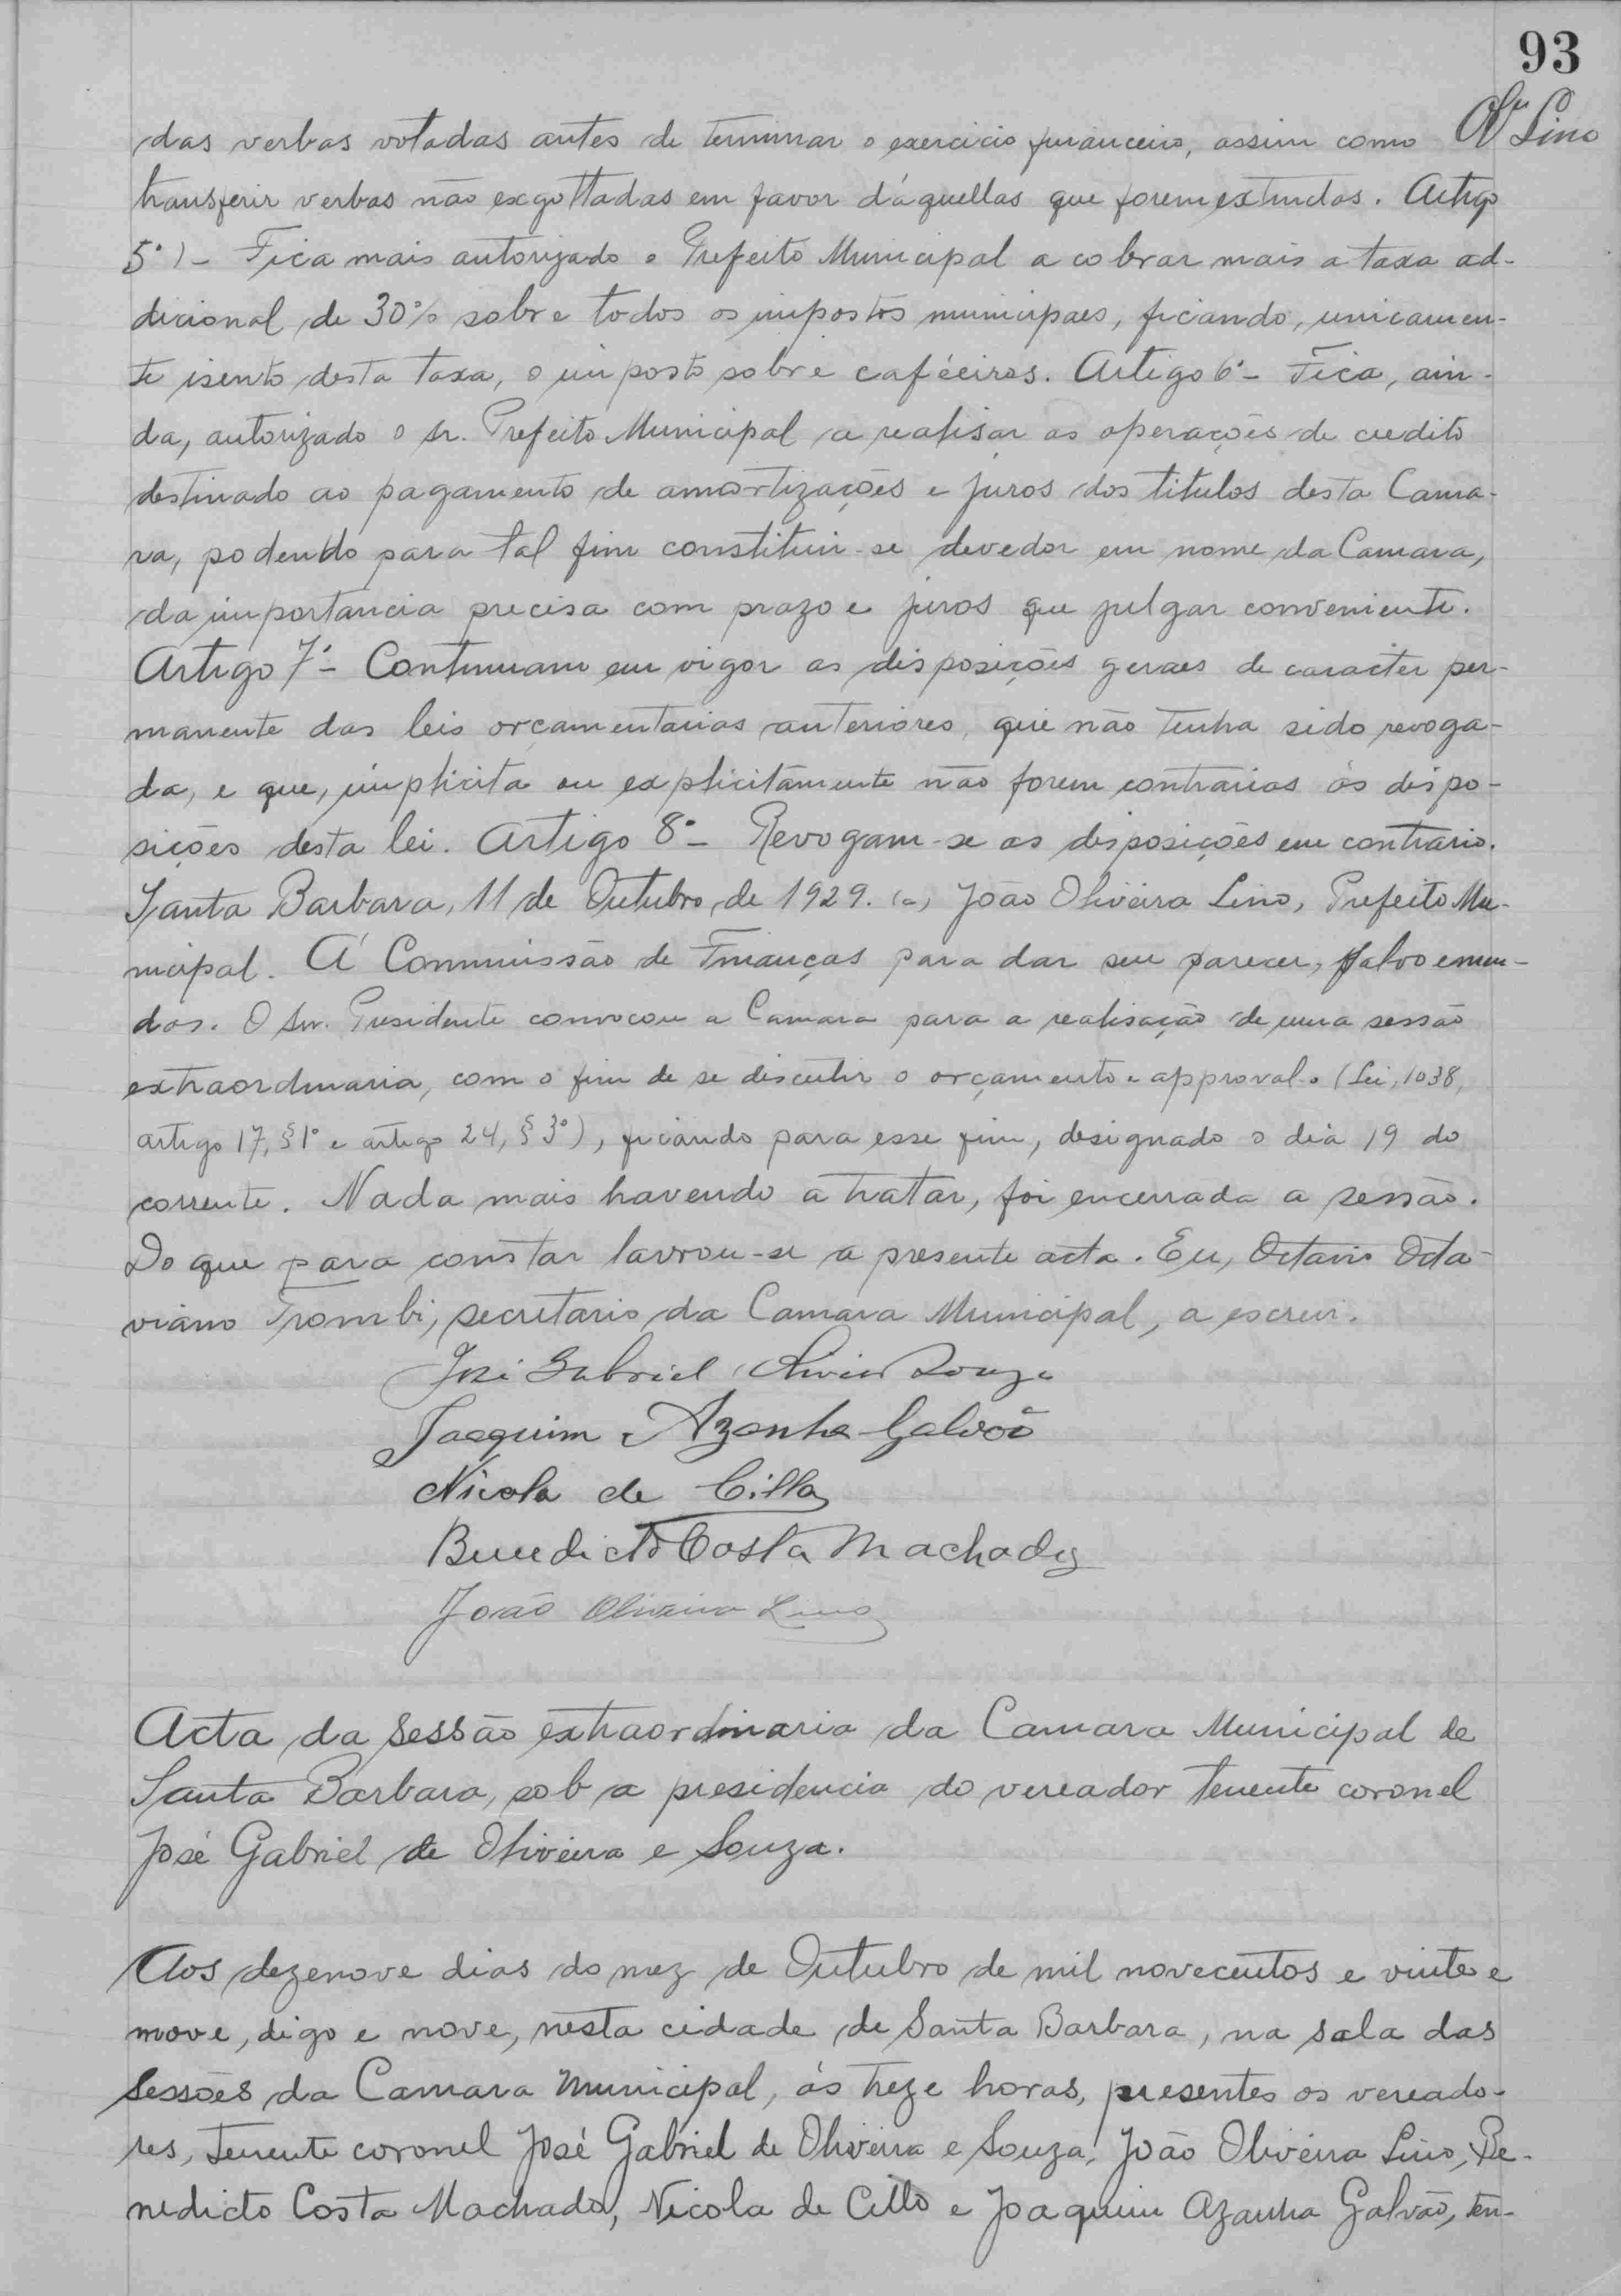 93
Olv Lino
das verbas votadas antes de terminar o exercicio financeiro, assim como
transferir verbas não exgottadas em favor d'aquellas que forem extinctas. Artigo
5º) - Fica mais autorizado o Prefeito Municipal a cobrar mais a taxa ad-
dicional de 30% sobre todos os impostos municipaes, ficando, unicamen-
te isento desta taxa, o imposto sobre caféeiros. Artigo 6º - Fica, ain-
da, autorizado o sr. Prefeito Municipal a realisar as operações de credito
destinado ao pagamento de amortizações e juros dos titulos desta Cama-
ra, podendo para tal fim constituir-se devedor em nome da Camara,
da importancia precisa com prazo e juros que julgar conveniente.
Artigo 7º - Continuam em vigor as disposições geraes de caracter per-
manente das leis orçamentarias anteriores, que não tenha sido revoga-
da, e que, implicita ou explicitamente não forem contrarias ás dispo-
sições desta lei. Artigo 8º - Revogam-se as disposições em contrario.
Santa Barbara, 11 de Outubro de 1929. (a) João Oliveira Lino, Prefeito Mu-
nicipal. Á Commissão de Finanças para dar seu parecer, salvo emen-
das. O Snr. Presidente convocou a Camara para a realisação de uma sessão
extraordinaria, com o fim de se discutir o orçamento e approval-o (Lei, 1038,
artigo 17, §1º e artigo 24, §3º), ficando para esse fim, designado o dia 19 do
corrente. Nada mais havendo a tratar, foi encerrada a sessão.
Do que para constar lavrou-se a presente acta. Eu, Octavio Octa-
viano Trombi, secretario da Camara Municipal, a escrevi.
José Gabriel Oliveira Souza
Joaquim Azanha Galvão
Nicola de Cillo
Benedicto Costa Machado
João Oliveira Lino
Acta da sessão extraordinaria da Camara Municipal de
Santa Barbara, sob a presidencia do vereador tenente coronel
José Gabriel de Oliveira e Souza.
Aos dezenove dias do mez de Outubro de mil novecentos e vinte e
move, digo e nove, nesta cidade de Santa Barbara, na sala das
sessões da Camara Municipal, ás treze horas, presentes os vereado-
res, tenente coronel José Gabriel de Oliveira e Souza, João Oliveira Lino, Be-
nedicto Costa Machado, Nicola de Cillo e Joaquim Azanha Galvão, ten-